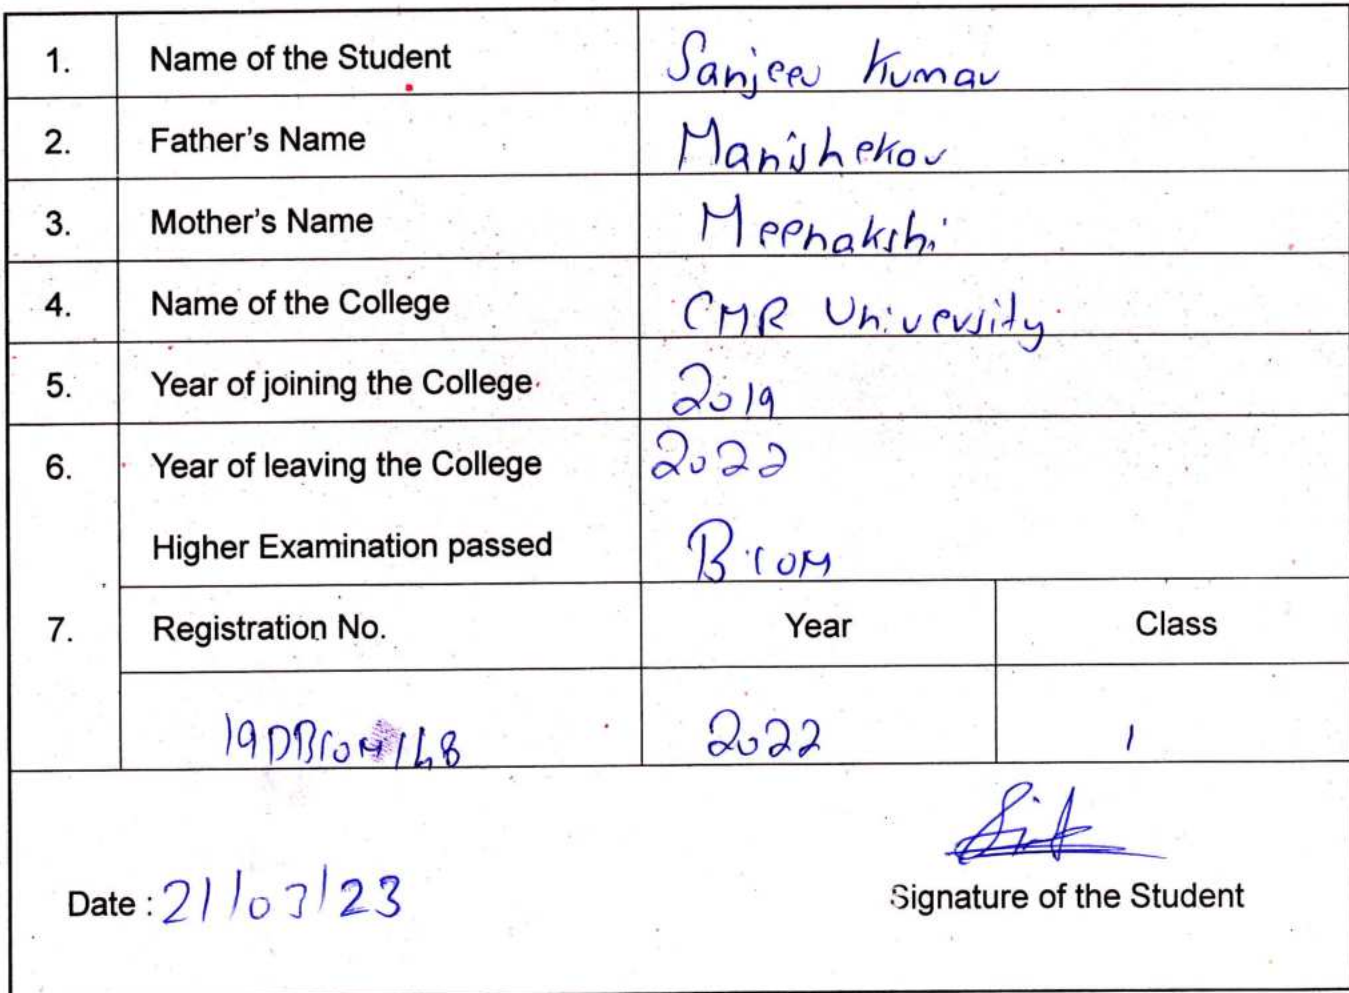 1. Name of the Student Sanjeev Kumar
2. Father's Name Manishekar
3. Mother's Name Meenakshi
4. Name of the College CMR University
5. Year of joining the College 2019
6. Year of leaving the College 2022
Higher Examination passed B.COM
7. Registration No. Year Class
2022 1
Date : 21/03/23
Signature of the Student